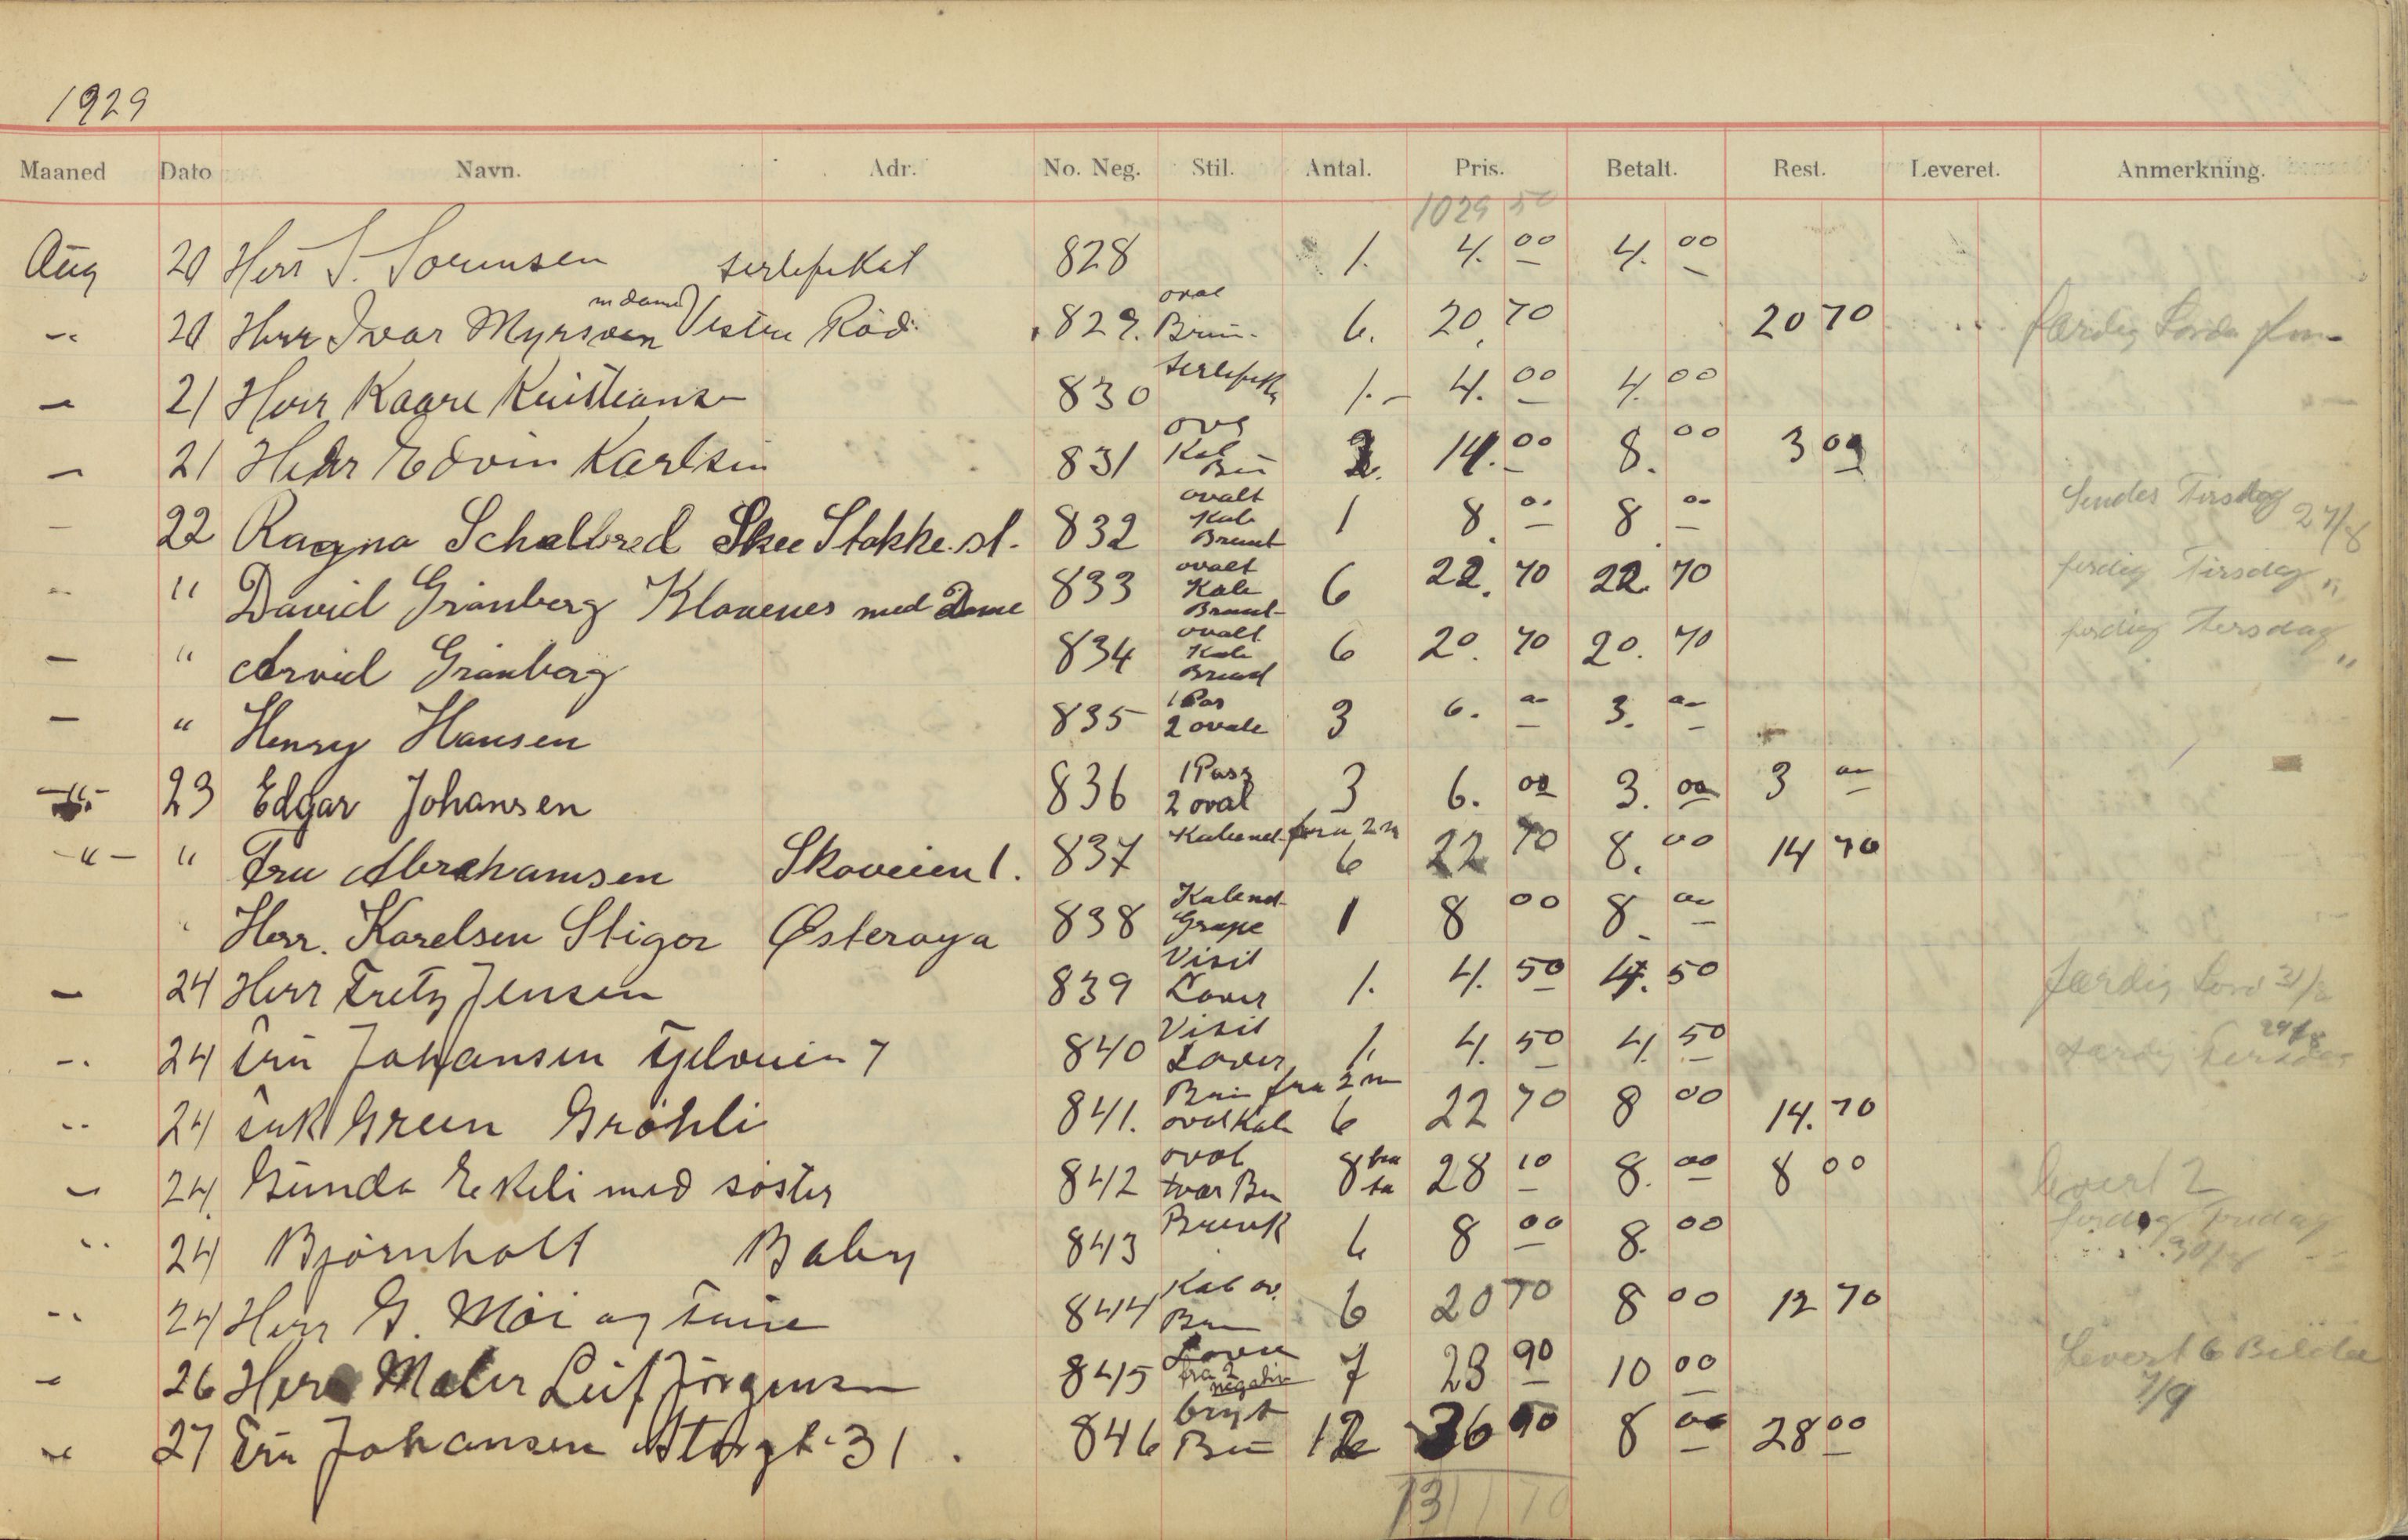 1929
Maaned Dato Navn. Adr. No. Neg. Stil. Antal. Pris. Betalt. Rest. Leveret. Anmerkning.
1029 50
Aug 20 Herr S. Sorensen sertefikat 828 1. 4. 00 4. 00
-"- 20 Herr Ivar Myrsven m dame Vestre Röd 829. oval Brun. 6. 20. 70 20 70 færdig
— 21 Herr Kaare Kristiansen 830 1.- 4. 00 4. 00
— 21 Herr Edvin Karlsen 831 2. 14. 00 8. 00 3 00
— 22 Ragna Schelbred Skee Stokke st. 832 ovalt Kab Brunt 1 8. 00 8. 00 Sendes Tirsdag 27/8
-"- " David Grünberg Klavenes med Dame 833 ovalt Kab Brunt 6 22. 70 22. 70 ferdig Tirsdag "
— " Arvid Grünberg 834 ovalt Kab Brunt 6 20. 70 20. 70 ferdig Tirsdag "
— " Henry Hansen 835 1 Pas 2 ovale 3 6. 00 3. 00
-"- 23 Edgar Johansen 836 1 Pass 2 oval 3 6. 00 3. 00 3 00
-"- " Fru Abrahamsen Skoveien 1. 837 fra 2 n 6 22 70 8. 00 14 70
" Herr. Karelsen Stigor Østerøya 838 Kabinet Grupe 1 8 00 8. 00
— 24 Herr Fretz Jensen 839 Visit 1. 4. 50 4. 50 færdig 31/8
-"- 24 Fru Johansen 7 840 Visit 1. 4. 50 4. 50 29/8
-"- 24 Frk Green Gröhli 841. Brun fra 2 n oval Kab 6 22 70 8 00 14. 70
— 24. Gunda Ekeli med søster 842 oval 8 28 10 8. 00 8 00 levert 2
-"- 24 Bjørnholt Baby 843 6 8 00 8. 00 ferdig Fredag 30/8
-"- 24 Herr G. Möi og frue 844 Kab ov. Brun 6 20 70 8 00 12 70
— 26 Herr Maler Leif Jörgensen 845 fra 2 negativ 7 23 90 10 00 Levert 6 Bilder 7/9
— 27 Fru Johansen Storgt. 31. 846 Brun 12 36 00 8 00 28 00